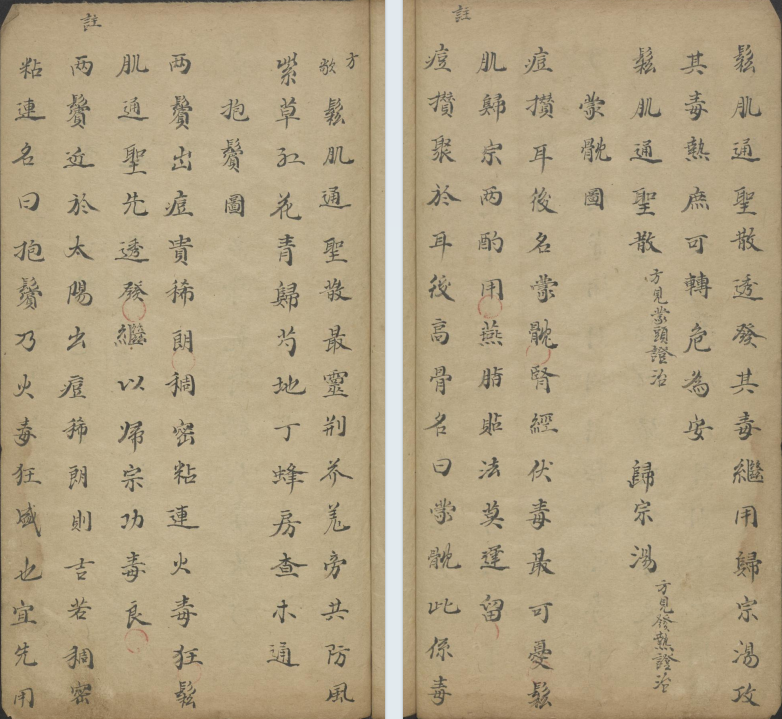 鬆肌通聖散透發其毒繼用歸宗湯攻
其毒熱庶可轉危為安
鬆肌通聖散 方見蒙頭證治 歸宗湯 方見發熱證治
蒙骩圖
痘攢耳後名蒙骩腎經伏毒最可憂鬆
肌歸宗两酌用燕脂貼法莫遲留
註
痘攢聚於耳後高骨名曰蒙骩此係毒
方歌
鬆肌通聖散最靈荆芥羌旁共防風
紫草紅花青歸芍地丁蜂房查木通
抱鬢圖
两鬢出痘貴稀朗稠密粘連火毒狂鬆
肌通聖先透發繼以歸宗功毒良
註
两鬢近於太陽出痘稀朗則吉若稠密
粘連名曰抱鬢乃火毒狂盛也宜先用